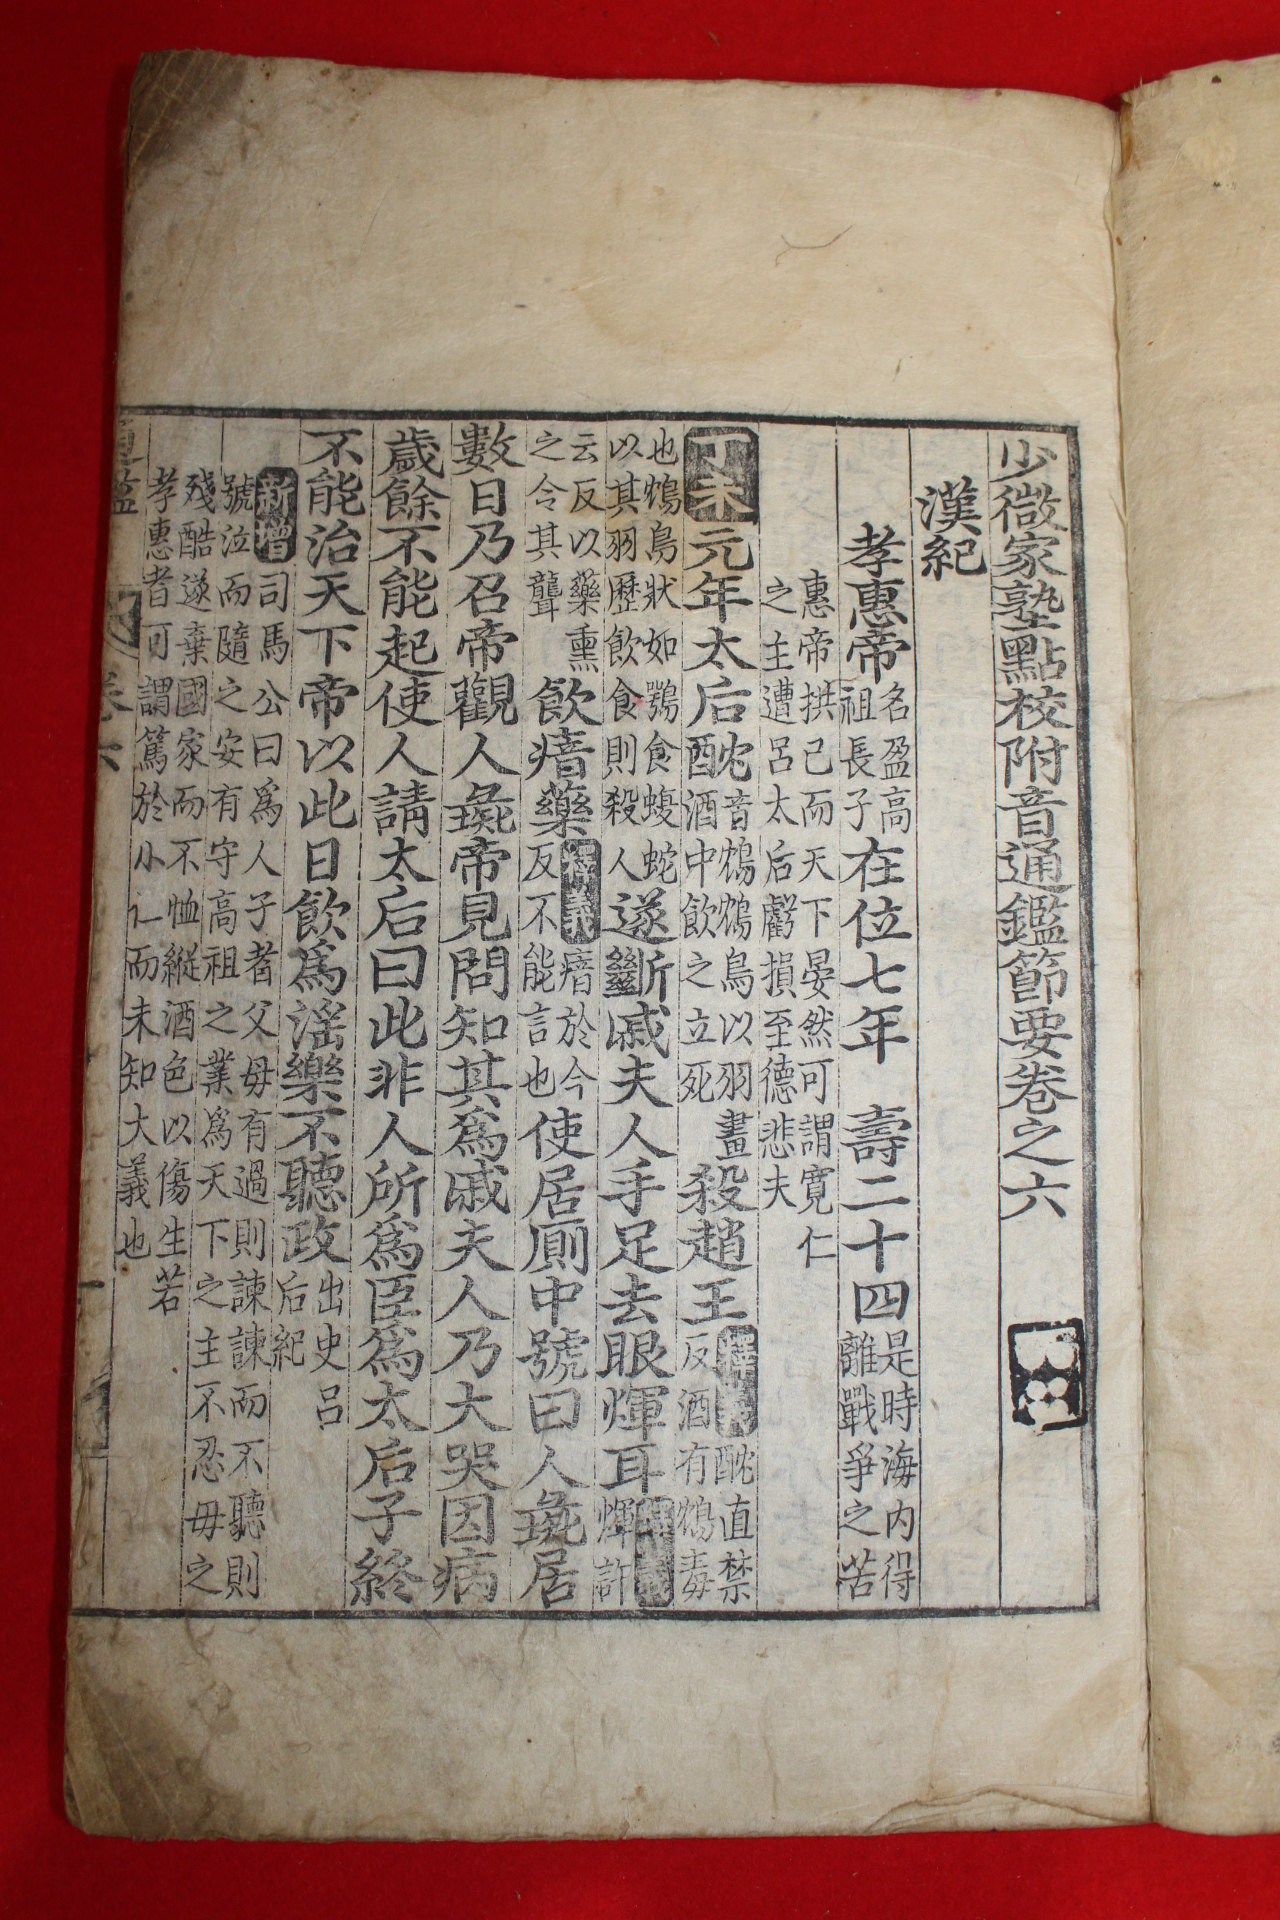 少微家塾點校附音通鑑節要卷之六
漢紀
孝惠帝名盈高祖長子在位七年 壽二十四是時海内得離戰爭之苦
惠帝拱己而天下晏然可謂寬仁之主遭呂太后虧損至德悲夫
丁未元年太后酖音鴆鴆鳥以羽畫酒中飲之立死殺趙王釋義酖直禁反酒有鴆毒
也鴆鳥狀如鶚食蝮蛇以其羽歷飲食則殺人遂斷戚夫人手足去眼煇耳釋義煇許
云反以藥熏之令其聾飮瘖藥釋義瘖於今反不能言也使居厠中號曰人彘居
數日乃召帝觀人彘帝見問知其爲戚夫人乃大哭因病
歲餘不能起使人請太后曰此非人所爲臣爲太后子終
不能治天下帝以此日飮爲滛樂不聽政出史呂后紀
新增司馬公曰爲人子者父母有過則諫諫而不聽則號泣而隨之安有守高祖之業爲天下之主不忍母之
殘酷遂棄國家而不恤縱酒色以傷生若孝惠者可謂篤於小仁而未知大義也
通鑑 卷六 一